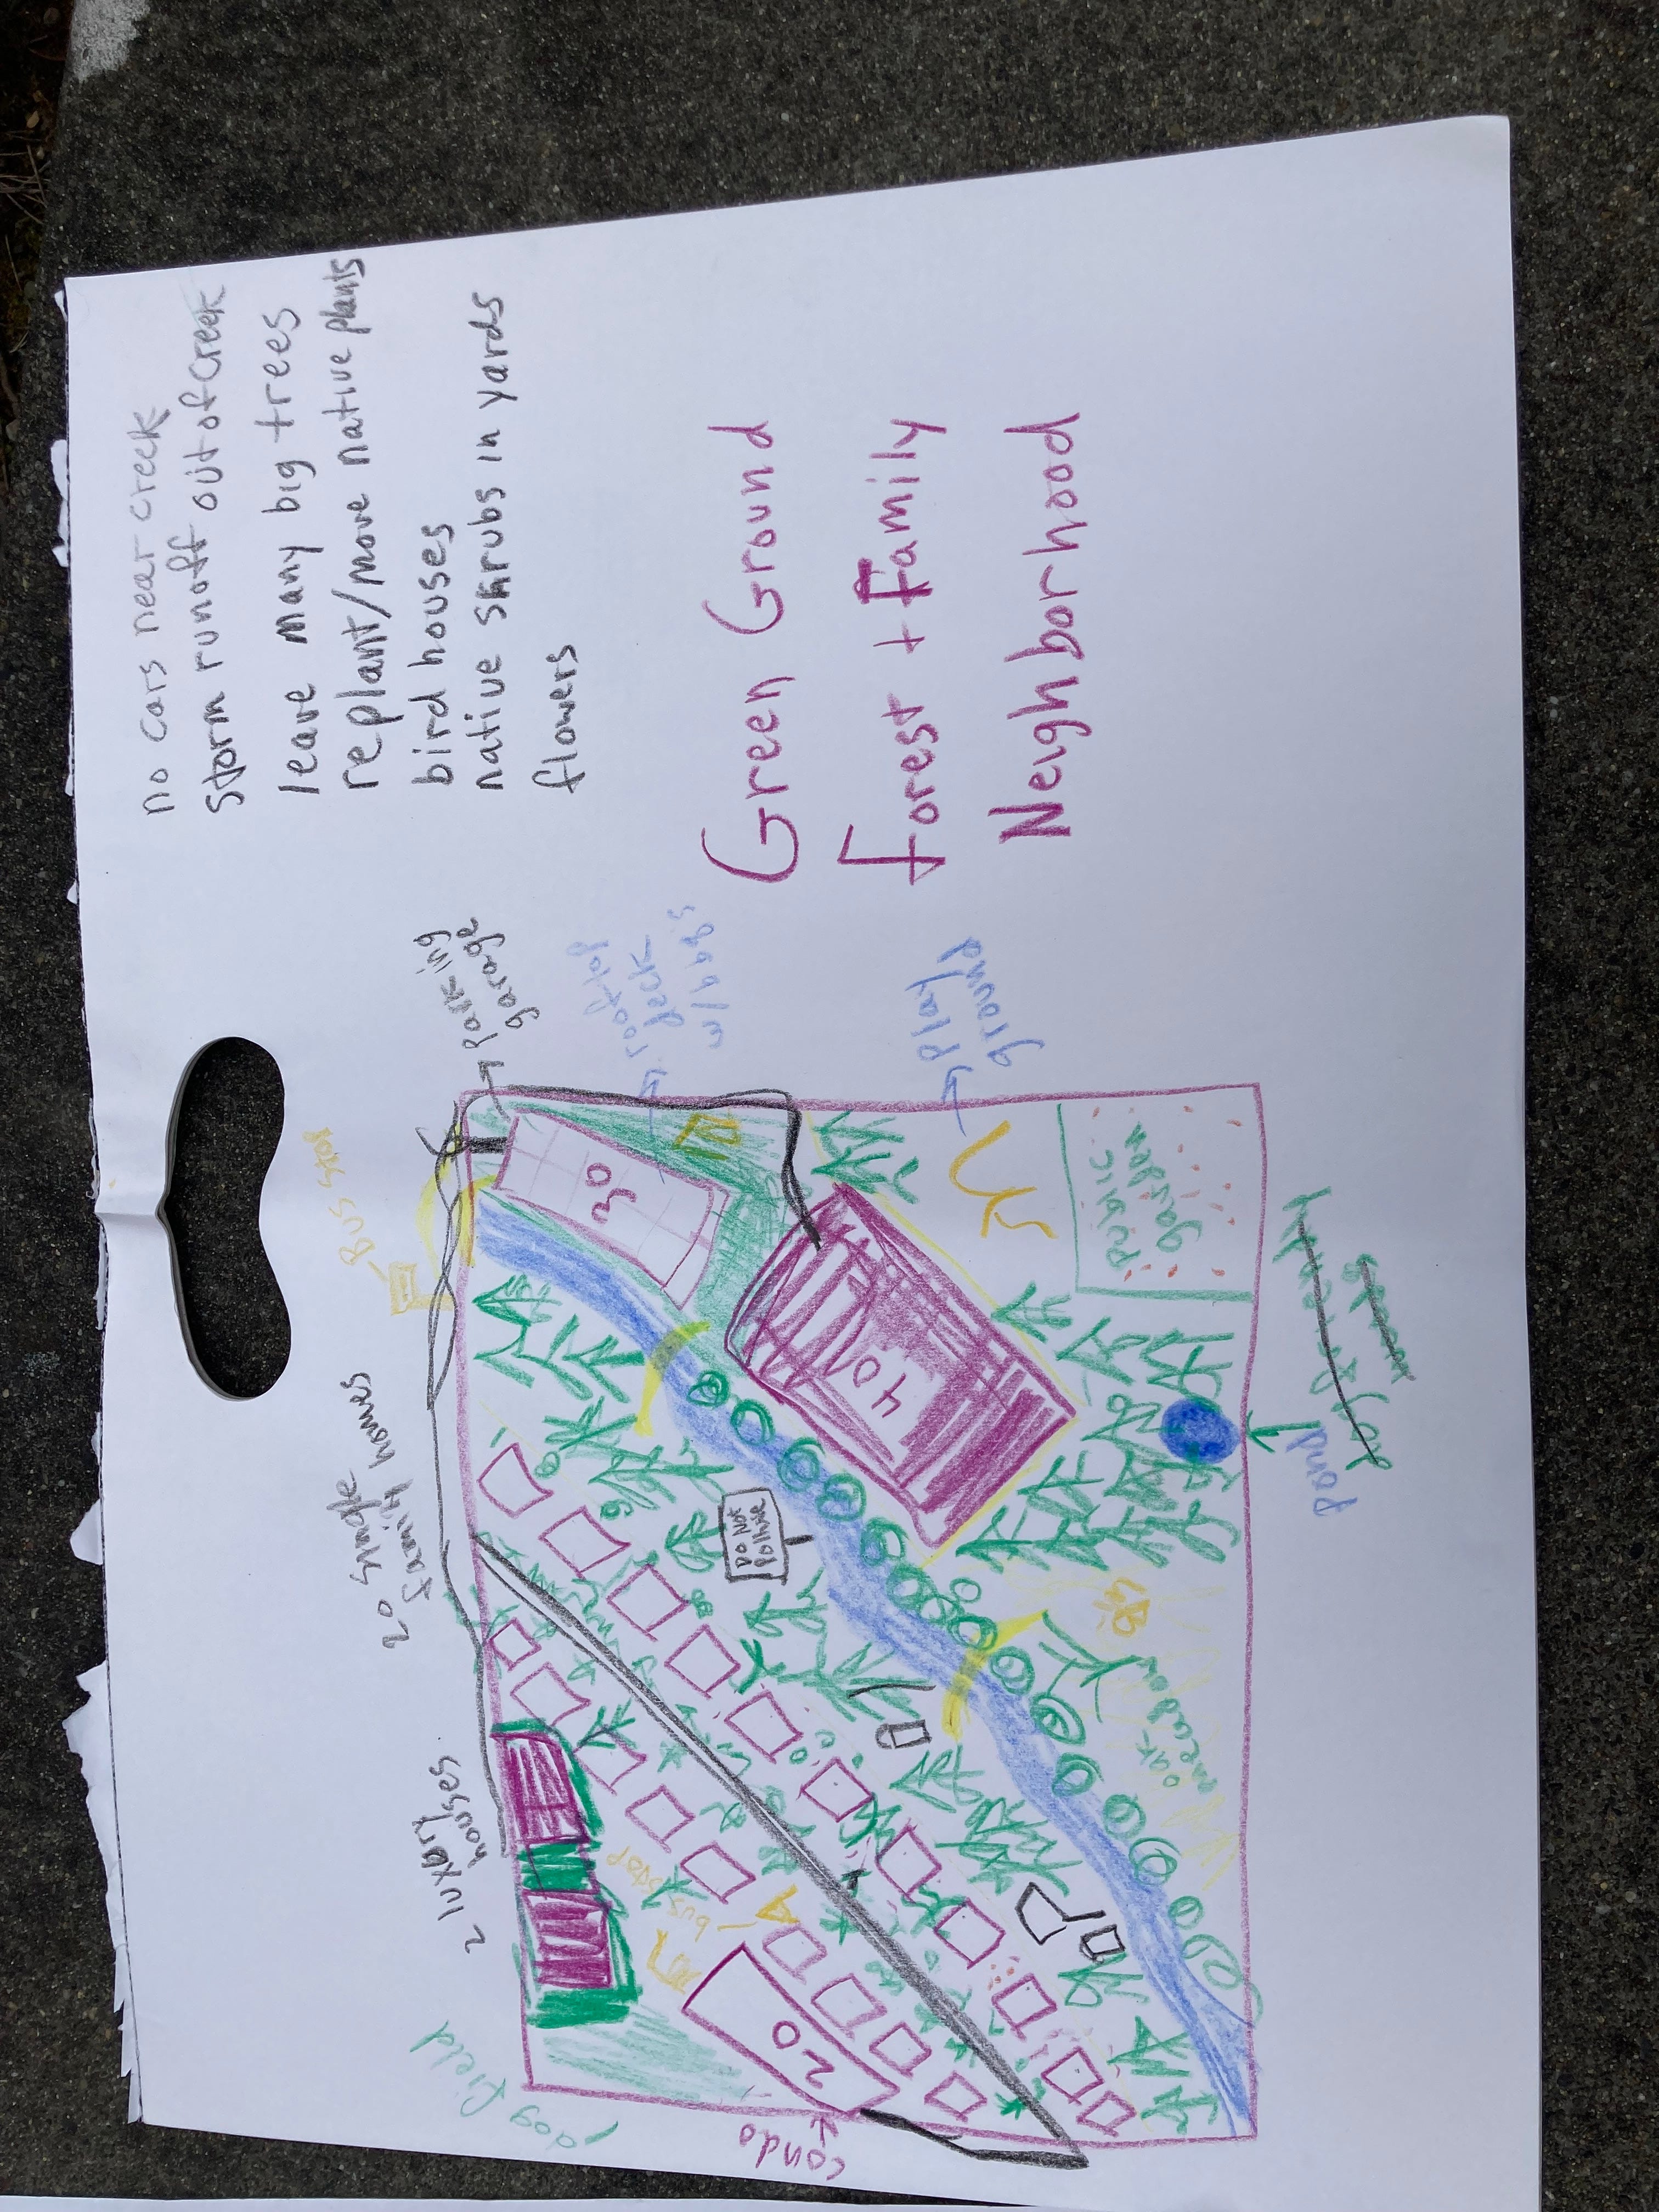 no cars near creek
storm runoff out of creek
leave many big trees
replant/move native plants
bird houses
native shrubs in yards
flowers
Green Ground
Forest + Family
Neighborhood
Parking
garage
rooftop
deck
w/bbq's
Play
ground
Bus stop
30
40
Public
garden
20 single
family homes
Do Not
Pollute
pond
2 luxury
houses
bus stop
oak
meadow
20
dog field
condo